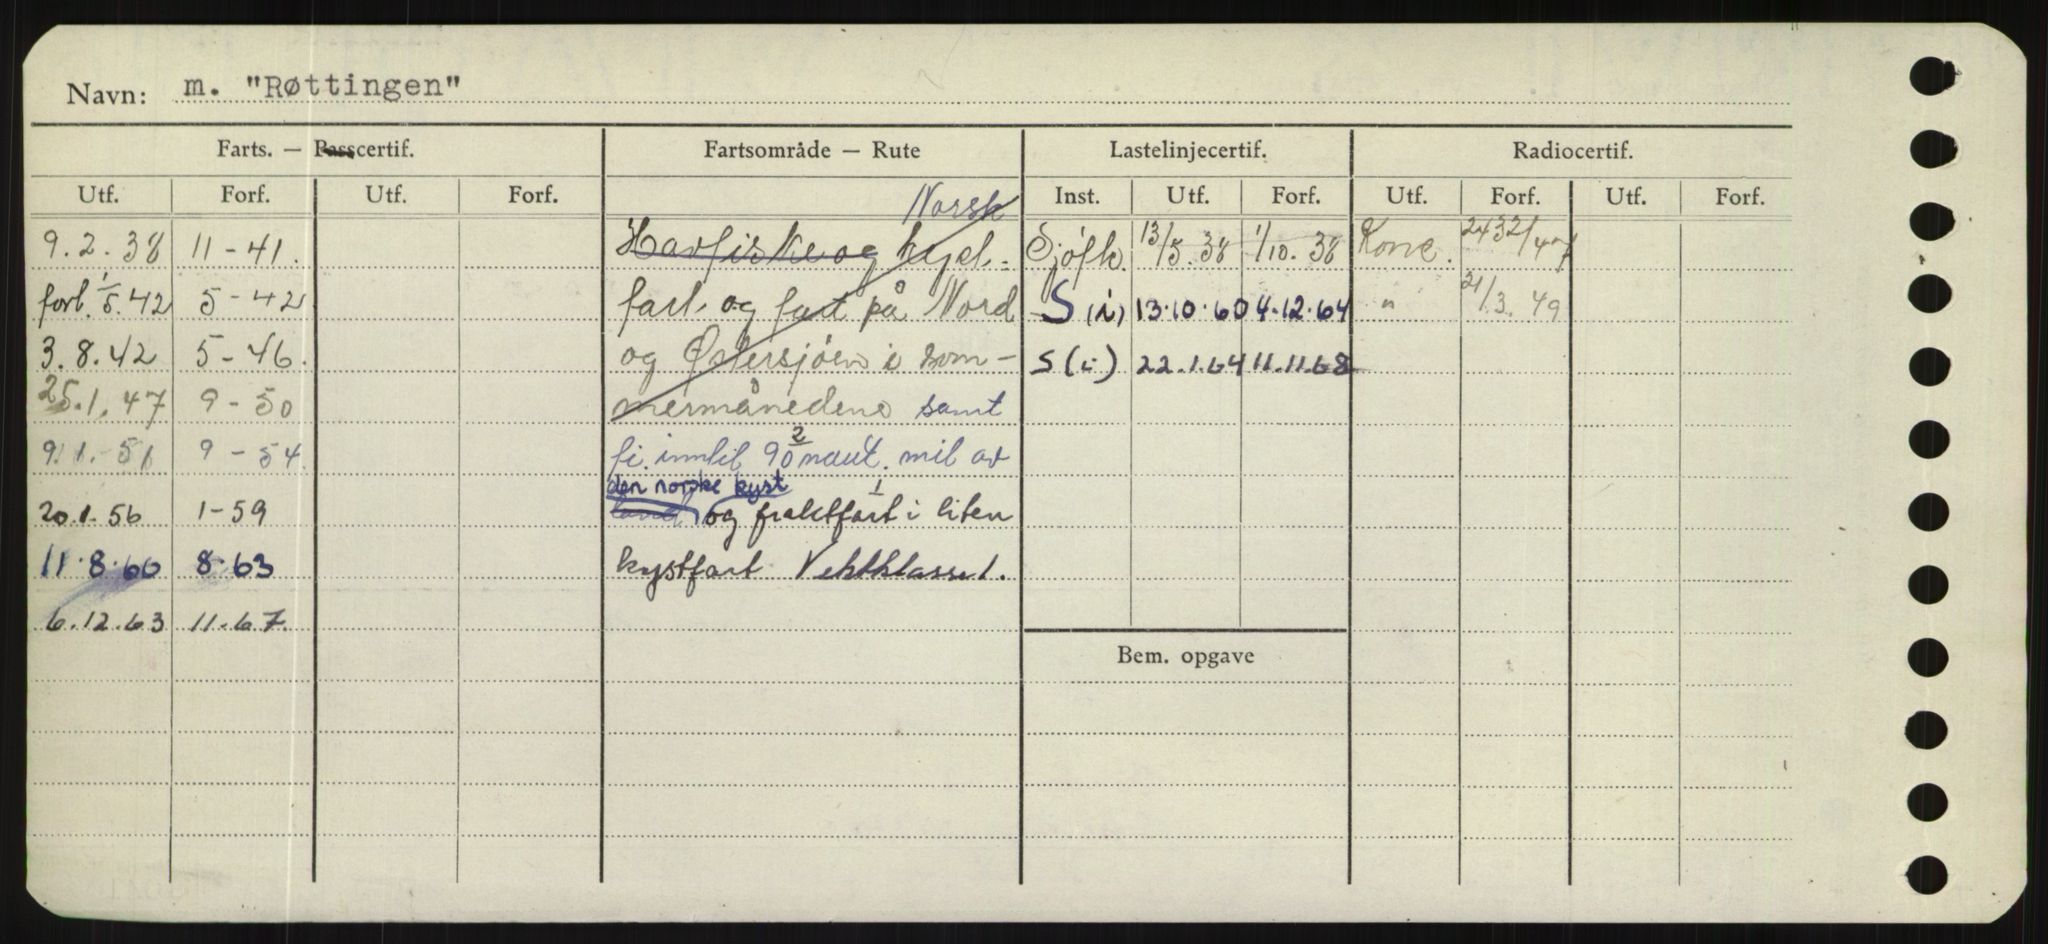 Navn: m. "Røttingen"
Farts. — Passcertif. Fartsområde — Rute Lastelinjecertif. Radiocertif.
Utf. Forf. Utf. Forf. Norsk Inst. Utf. Forf. Utf. Forf. Utf. Forf.
9.2.38 11-41. Havfiske og kyst- Sjöfk. 13/5.38 1/10.38 Konc. /47
forl. 1/5.42 5-42 fart og fart på Nord S (i) 13.10.60 4.12.64 " 21/3.49
3.8.42 5-46. og Østersjöen i som- S (i) 22.1.64 11.11.68
25.1.47 9-50 mermånedene samt
9.1.51 9-54. fi. inntil 90 2 naut. mil av
den norske kyst 1
20.1.56 1-59 land og fraktfart i liten
11.8.60 8.63 kystfart Vektklasse 1.
6.12.63 11.67.
Bem. opgave